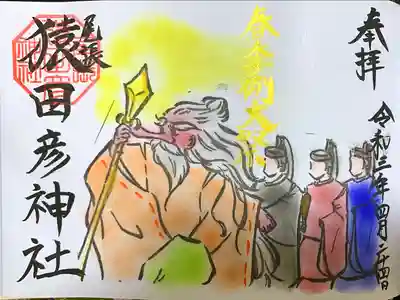 奉拝
令和三年四月二十四日
春季例大祭
尾張
猿田彦神社